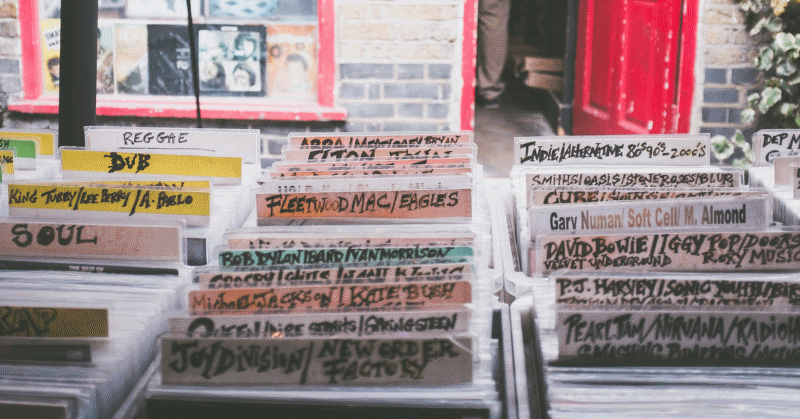 REGGAE
DUB
KING TUBBY/LEE PERRY/A. PABLO
SOUL
THE BEST OF
RAP
ABBA/MEATLOAF/BRYAN
ELTON
FLEETWOOD MAC/EAGLES
BOB DYLAN/BAND/VAN MORRISON
MICHAEL JACKSON/KATE BUSH
QUEEN/DIRE STRAITS/SPRINGSTEEN
JOY DIVISION/NEW ORDER
FACTORY
INDIE/ALTERNATIVE 80'S 90'S-2000'S
SMITHS/OASIS/STONE ROSES/BLUR
CURE/
Gary Numan/Soft Cell/M. Almond
DAVID BOWIE/IGGY POP/DOORS
VELVET UNDERGROUND ROXY MUSIC
P.J. HARVEY/SONIC YOUTH/
PEARL JAM/NIRVANA/RADIOH
SMASHING PUMPKINS/
DEP M